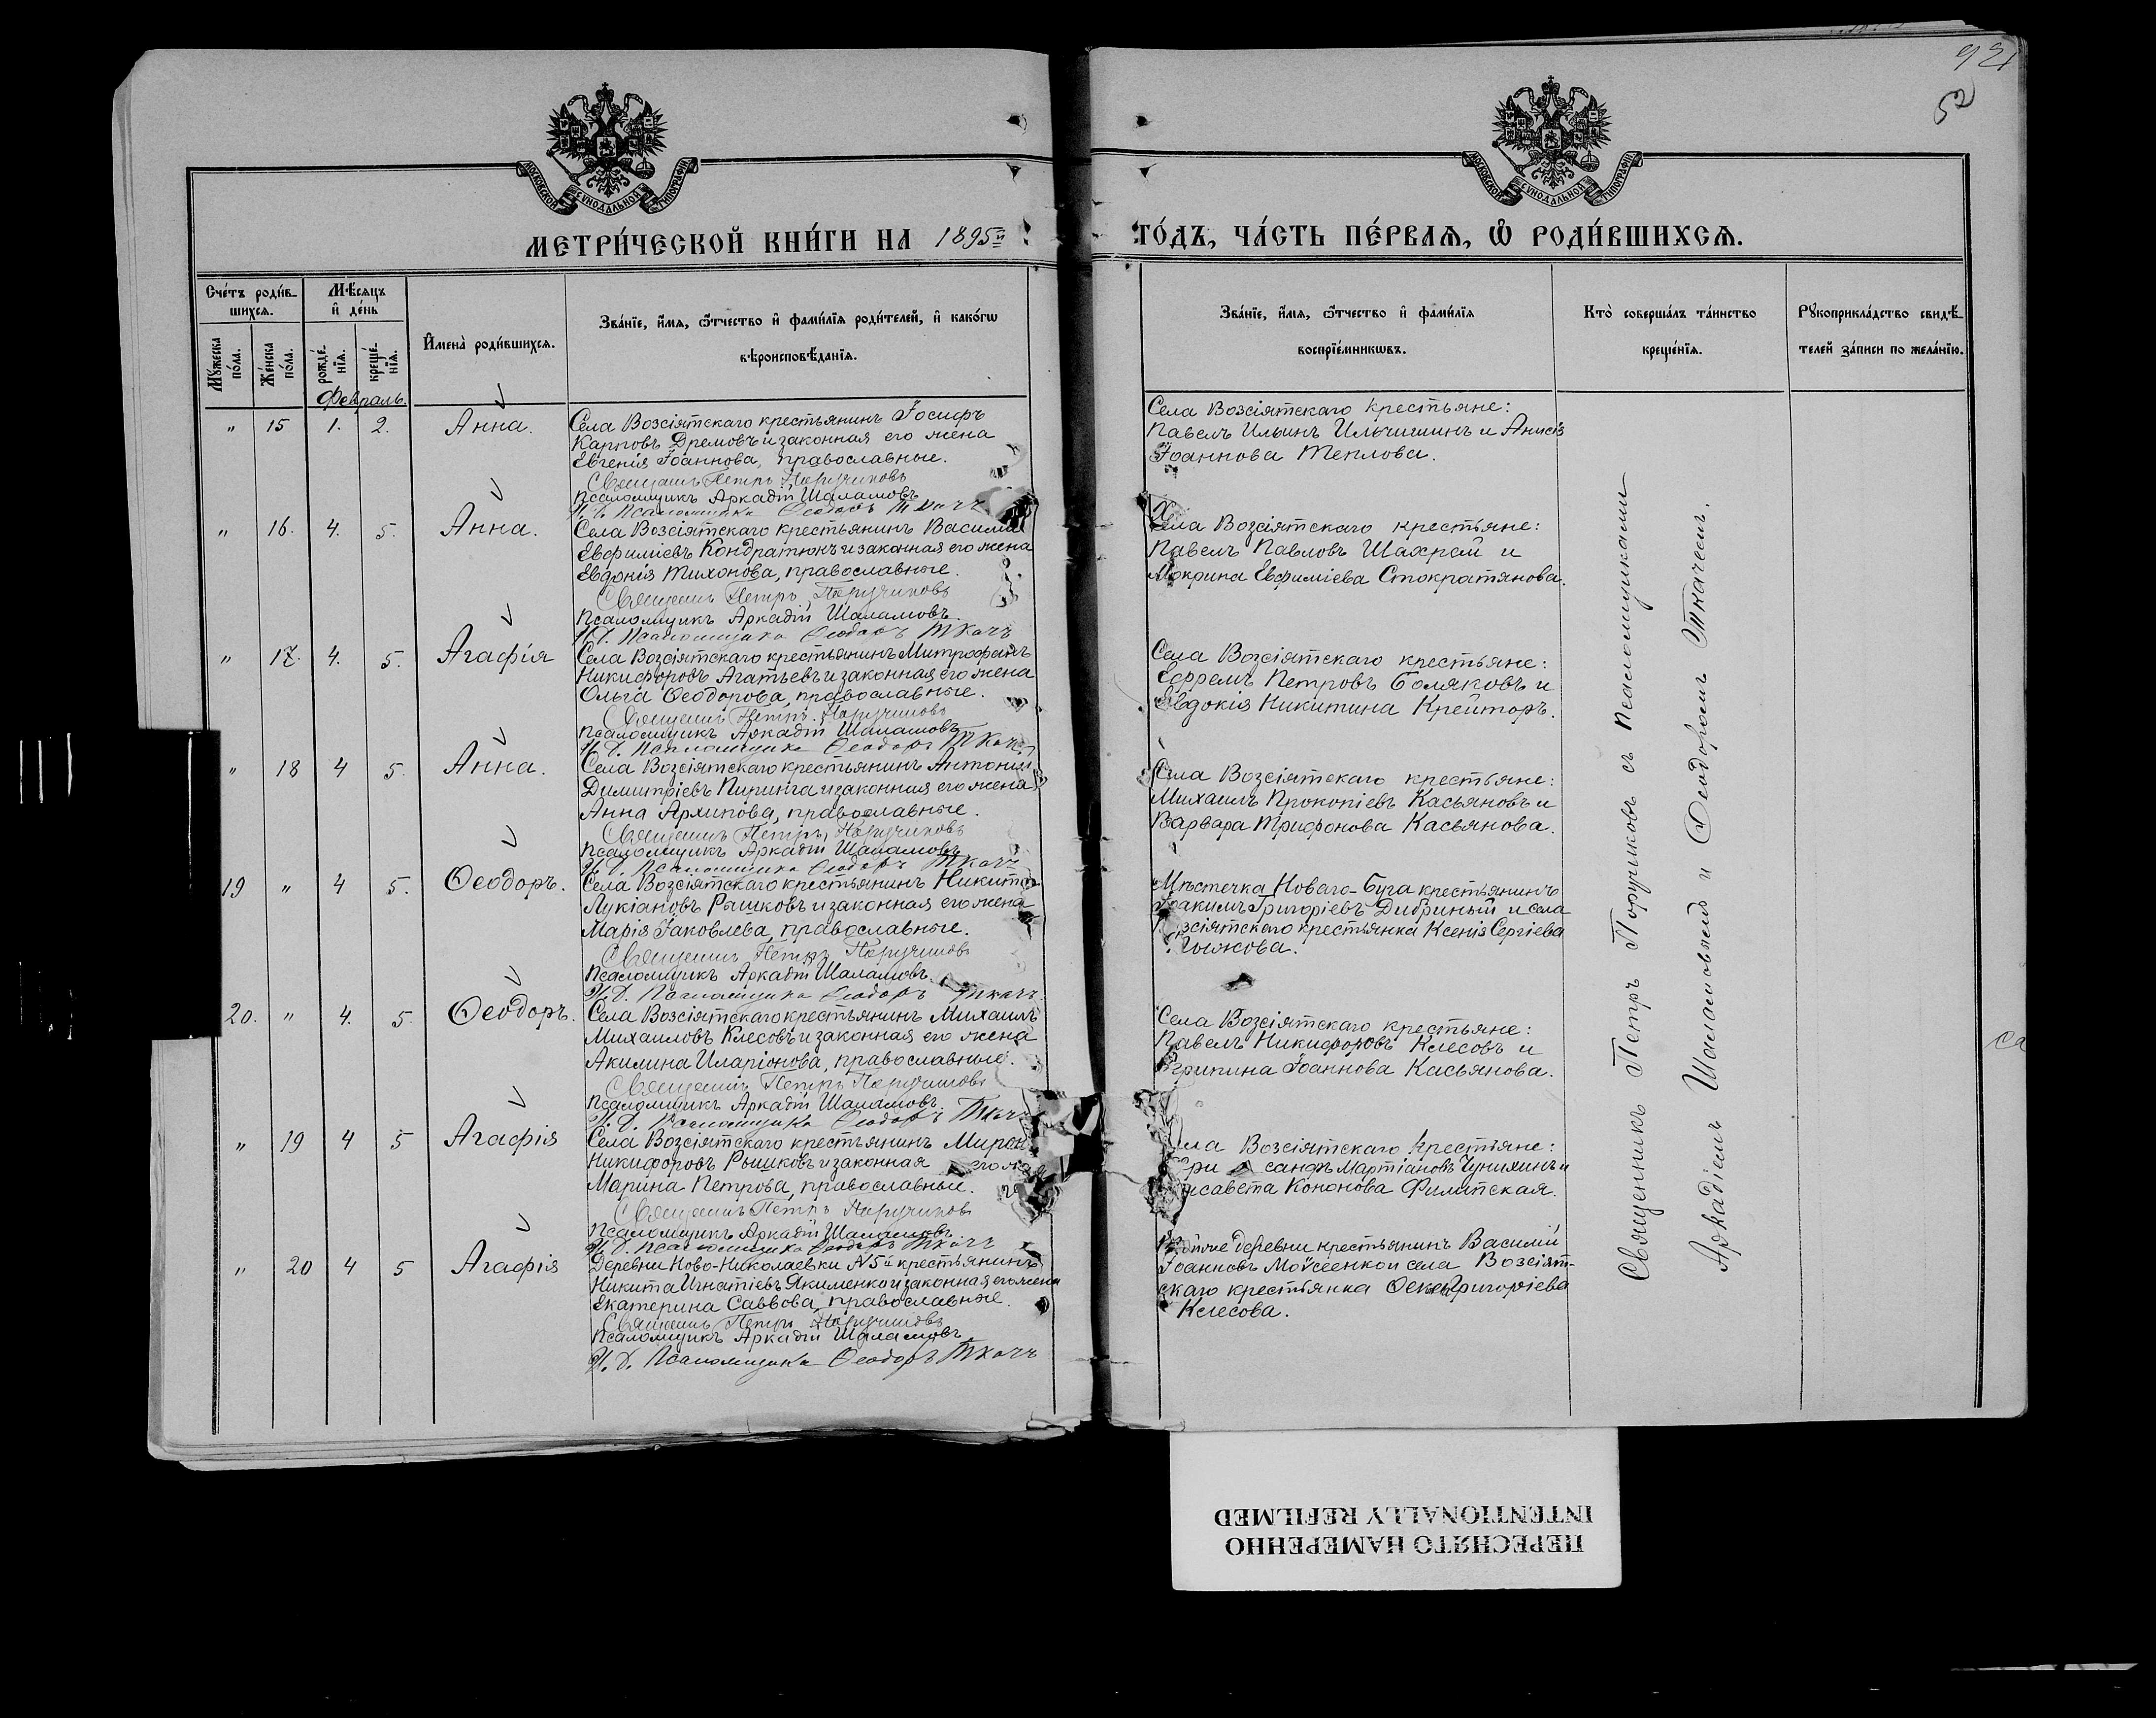 92
52
МОСКОВСКОЙ СѴНОДАЛЬНОЙ ТИПОГРАФІИ
МОСКОВСКОЙ СѴНОДАЛЬНОЙ ТИПОГРАФІИ
МЕТРИ́ЧЕСКОЙ КНИ́ГИ НА 1895й
ГО́ДЪ, ЧА́СТЬ ПЕ́РВАѦ, Ѡ҆ РОДИ́ВШИХСѦ.
Сче́тъ роди́в-
шихсѧ.
Мꙋ́жеска
по́ла.
Же́нска
по́ла.
Мѣ́сѧцъ
и҆ де́нь
рожде́-
нїѧ.
креще́-
нїѧ.
И҆мена̀ роди́вшихсѧ.
Зва́нїе, и҆́мѧ, ѻ҆́тчество и҆ фами́лїѧ роди́телей, и҆ како́гѡ
вѣроисповѣ́данїѧ.
Зва́нїе, и҆́мѧ, ѻ҆́тчество и҆ фами́лїѧ
воспрїе́мникѡвъ.
Кто̀ соверша́лъ та́инство
креще́нїѧ.
Рꙋкоприкла́дство свидѣ́-
телей за́писи по жела́нїю.
Февраль.
" 15 1. 2. Анна.
Села Возсіятскаго крестьянинъ Іосифъ
Карповъ Дремовъ и законная его жена
Евгенія Іоаннова, православные.
Священникъ Петръ Поручиковъ
Псаломщикъ Аркадій Шаламовъ
И. Д. Псаломщика Ѳеодоръ Ткачъ
Села Возсіятскаго крестьяне:
Павелъ Ильинъ Ильчишинъ и Анисія
Іоаннова Теплова.
" 16. 4. 5. Анна.
Села Возсіятскаго крестьянинъ Василій
Евфиміевъ Кондратюкъ и законная его жена
Евдокія Тихонова, православные.
Священникъ Петръ Поручиковъ
Псаломщикъ Аркадій Шаламовъ.
И. Д. Псаломщика Ѳеодоръ Ткачъ
Села Возсіятскаго крестьяне:
Павелъ Павловъ Шахрай и
Мокрина Евфиміева Стократянова.
" 17. 4. 5. Агафія
Села Возсіятскаго крестьянинъ Митрофанъ
Никифоровъ Агатьевъ и законная его жена
Ольга Ѳеодорова, православные.
Священникъ Петръ Поручиковъ
Псаломщикъ Аркадій Шаламовъ
И. Д. Псаломщика Ѳеодоръ Ткачъ
Села Возсіятскаго крестьяне:
Ефремъ Петровъ Боляковъ и
Евдокія Никитина Крейторъ.
" 18 4 5. Анна.
Села Возсіятскаго крестьянинъ Антоній
Димитріевъ Киринга и законная его жена
Анна Архипова, православные.
Священникъ Петръ Поручиковъ
Псаломщикъ Аркадій Шаламовъ
И. Д. Псаломщика Ѳеодоръ Ткачъ
Села Возсіятскаго крестьяне:
Михаилъ Прокопіевъ Касьяновъ и
Варвара Трифонова Касьянова.
19 " 4 5. Ѳеодоръ.
Села Возсіятскаго крестьянинъ Никита
Лукіановъ Рышковъ и законная его жена
Марія Іаковлева, православные.
Священникъ Петръ Поручиковъ
Псаломщикъ Аркадій Шаламовъ.
И. Д. Псаломщика Ѳеодоръ Ткачъ.
Мѣстечка Новаго-Буга крестьянинъ
Іоакимъ Григоріевъ Дибриный и села
зсіятскаго крестьянка Ксенія Сергіева
20. " 4. 5. Ѳеодоръ.
Села Возсіятскаго крестьянинъ Михаилъ
Михаиловъ Клесовъ и законная его жена
Акилина Иларіонова, православные.
Священникъ Петръ Поручиковъ
Псаломщикъ Аркадій Шаламовъ.
И. Д. Псаломщика Ѳеодоръ Ткачъ
Села Возсіятскаго крестьяне:
Павелъ Никифоровъ Клесовъ и
Агрипина Іоаннова Касьянова.
" 19 4 5 Агафія
Села Возсіятскаго крестьянинъ Миро
Никифоровъ Рышковъ и законная его
Марина Петрова, православные.
Священникъ Петръ Поручиковъ
Псаломщикъ Аркадій Шаламовъ
И. Д. Псаломщика Ѳеодоръ Ткачъ
ла Возсіятскаго крестьяне:
сандъ Мартіановъ Чунихинъ и
исавета Кононова Филипская.
" 20 4 5 Агафія
Деревни Ново-Николаевки №5й крестьянинъ
Никита Игнатіевъ Якименко и законная его жена
Екатерина Саввова, православные.
Священникъ Петръ Поручиковъ
Псаломщикъ Аркадій Шаламовъ
И. Д. Псаломщика Ѳеодоръ Ткачъ
деревни крестьянинъ Василій
Іоанновъ Мойсеенко и села Возсіят-
скаго крестьянка Ѳекла Григоріева
Клесова.
Священникъ Петръ Поручиковъ съ Псаломщиками
Аркадіемъ Шаламовымъ и Ѳеодоромъ Ткачемъ.
са
ПЕРЕСНЯТО НАМЕРЕННО
INTENTIONALLY REFILMED